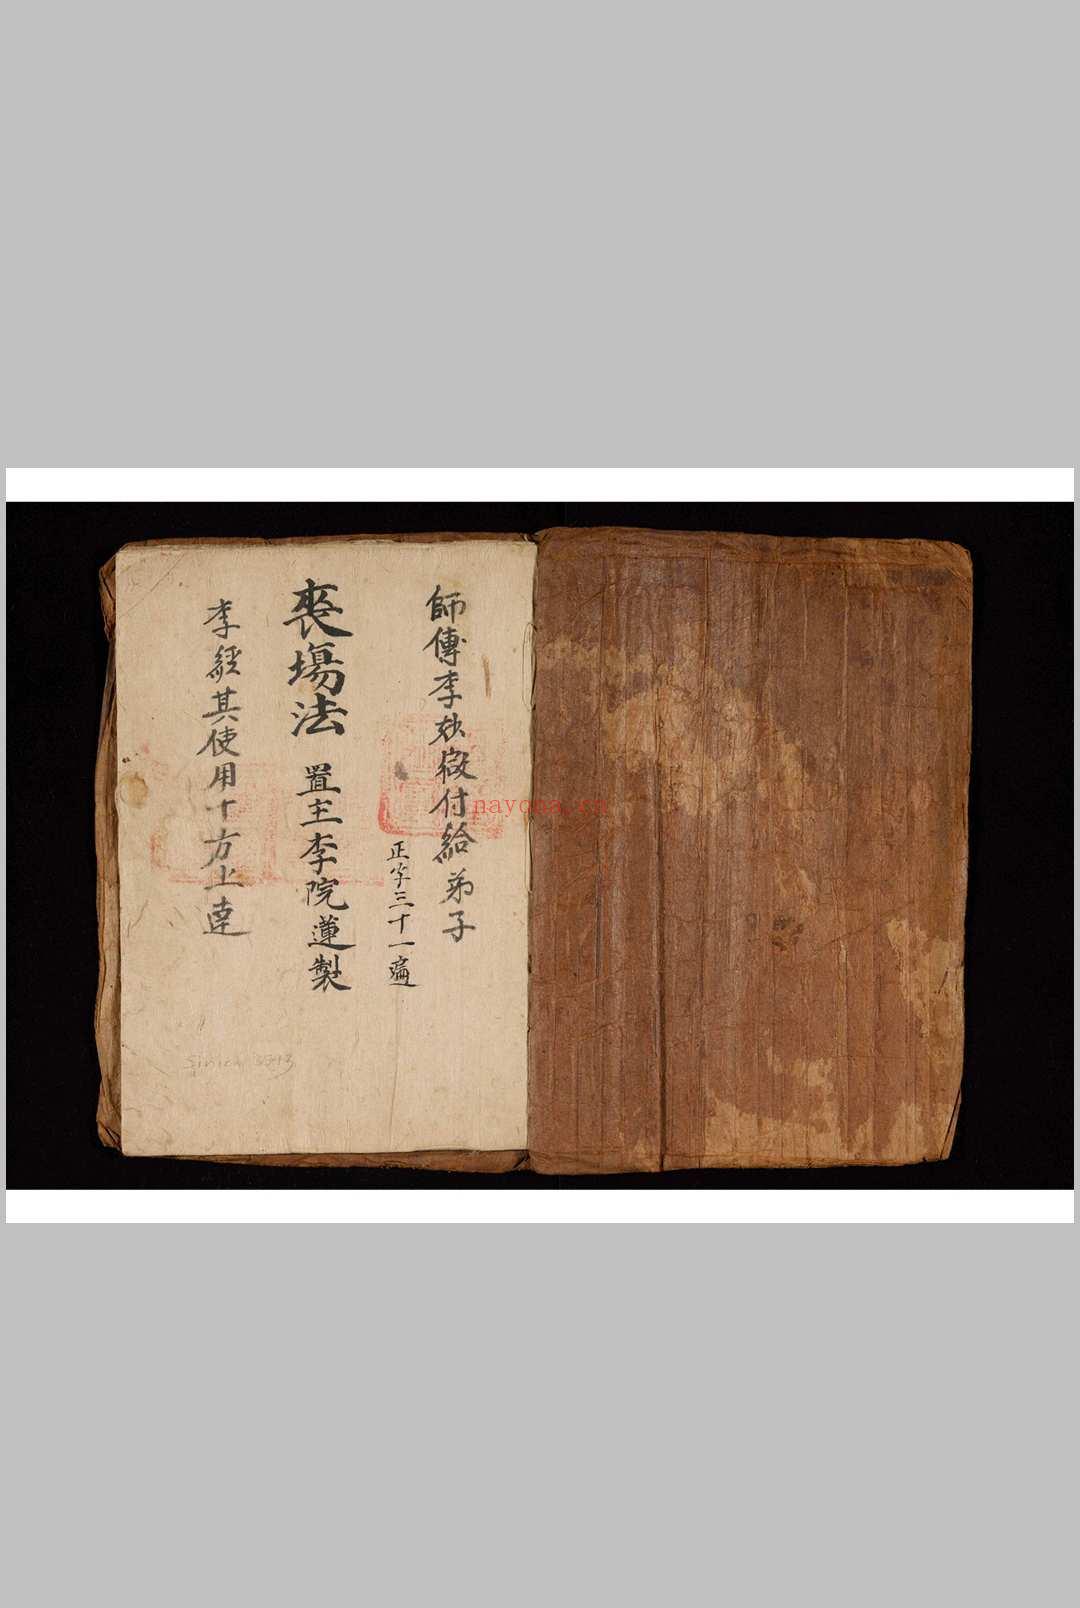 師傳李妙微付給弟子
正字三十一遍
喪塲法 置主李院蓮製
李經其使用十方上達
Sinica 3943
nayona.cn